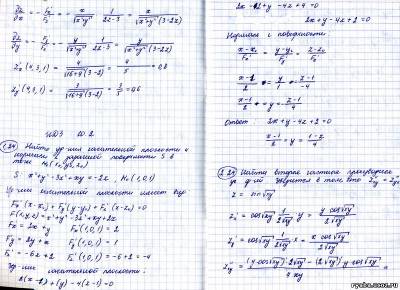 ∂z/∂x = - Fx'/Fz' = - x/√(x²+y²) · 1/(2z-3) = x/(√(x²+y²)(3-2z))
∂z/∂y = - Fy'/Fz' = - y/√(x²+y²) · 1/(2z-3) = y/(√(x²+y²)(3-2z))
Zx'(4,3,1) = 4/(√(16+9)(3-2)) = 4/5 = 0,8
Zy'(4,3,1) = 3/(√(16+9)(3-2)) = 3/5 = 0,6
ИДЗ 10.2
1.24 Найти ур-ния касательной плоскости и
нормали к заданной поверхности S в
точке M₀(x₀,y₀,z₀)
S: x²+y²-3z²+xy = -2z, M₀(1,0,1)
Ур-ние касательной плоскости имеет вид
Fx'(x-x₀) + Fy'(y-y₀) + Fz'(z-z₀) = 0
F(x,y,z) = x²+y²-3z²+xy+2z
Fx' = 2x+y Fx'(1,0,1) = 2
Fy' = 2y+x Fy'(1,0,1) = 1
Fz' = -6z+2 Fz'(1,0,1) = -6+2 = -4
Ур-ние касательной плоскости:
2(x-1)+(y)-4(z-1)=0
2x-2+y-4z+4=0
2x+y-4z+2=0
Нормаль к поверхности
(x-x₀)/Fx' = (y-y₀)/Fy' = (z-z₀)/Fz'
(x-1)/2 = y/1 = (z-1)/-4
(x-1)/2 = y = (z-1)/-4
Ответ: 2x+y-4z+2=0
(x-1)/2 = y = (1-z)/4
2.24 Найти вторые частные производные
z = sin√xy
Zx' = cos√xy · 1/(2√xy) · y = y cos√xy/(2√xy)
Zy' = cos√xy · 1/(2√xy) · x = x cos√xy/(2√xy)
ryaba.okoz.ru